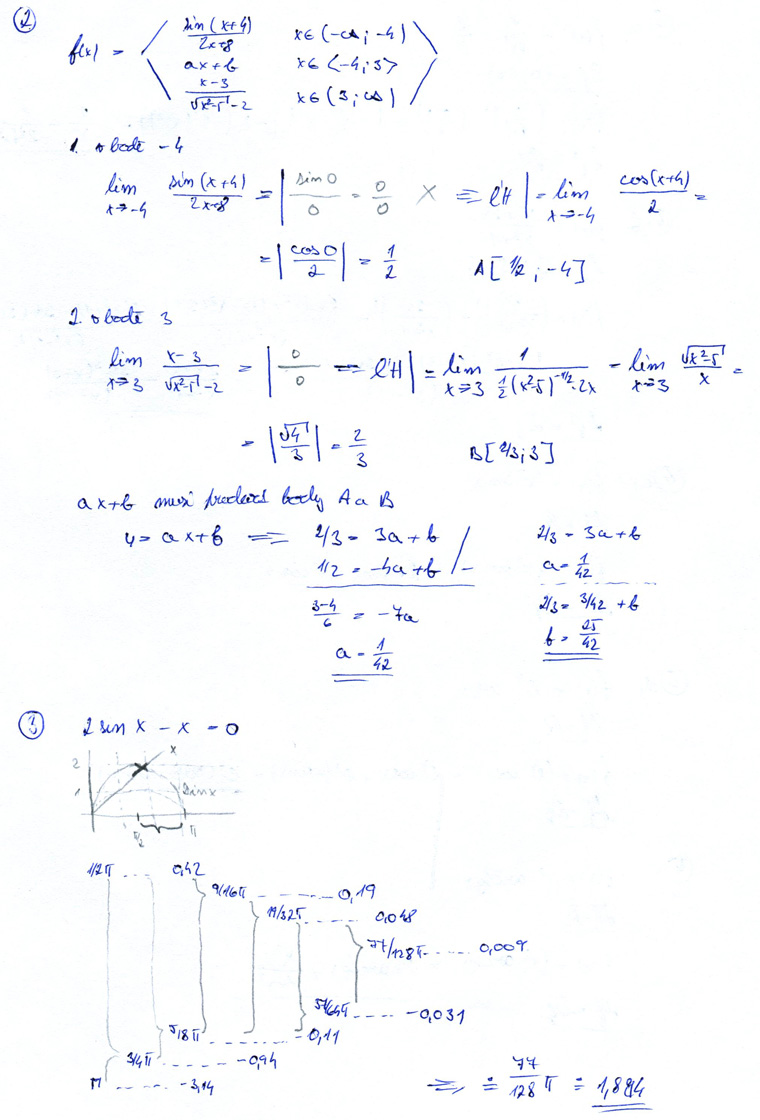 ②
f(x) = sin(x+4)/2x+8 x∈(-∞; -4)
ax+b x∈<-4; 3>
x-3/√x²-5-2 x∈(3; ∞)
1. v bodě -4
lim x→-4 sin(x+4)/2x+8 = | sin0/0 = 0/0 X ⇒ l'H | = lim x→-4 cos(x+4)/2 =
= | cos0/2 | = 1/2 A[1/2; -4]
2. v bodě 3
lim x→3 x-3/√x²-5-2 = | 0/0 ⇒ l'H | = lim x→3 1/½(x²-5)^-1/2·2x = lim x→3 √x²-5/x =
= | √4/3 | = 2/3 B[2/3; 3]
ax+b musí body A a B
y = ax+b ⇒ 2/3 = 3a+b 2/3 = 3a+b
1/2 = -4a+b /- a = 1/42
3-4/6 = -7a 2/3 = 3/42 + b
a = 1/42 b = 25/42
③ 2 sin x - x = 0
2 x
2sinx
π/2 π
1/2π --- 0,42
9/16π --- 0,19
19/32π --- 0,048
77/128π --- 0,009
--- -0,031
5/8π --- -0,11
3/4π --- -0,94
π --- -3,14
⇒ ≐ 77/128 π ≐ 1,894